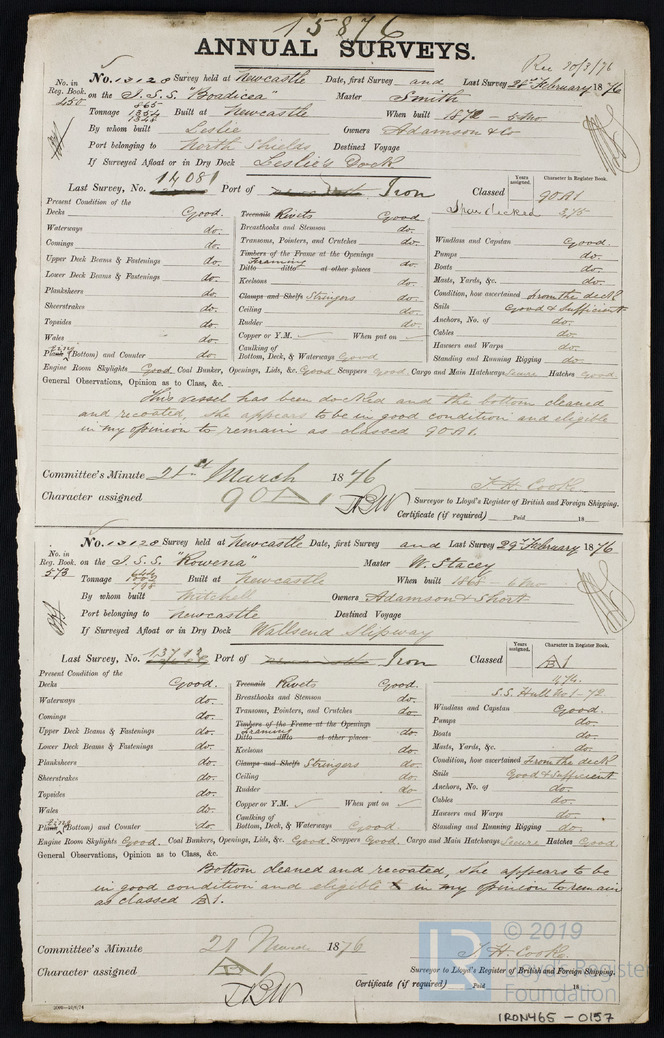 15876
ANNUAL SURVEYS.
Rec 20/3/76
No. in Reg. Book. 450
No. 13128 Survey held at Newcastle Date, first Survey and Last Survey 28th February 1876
on the I.S.S. "Boadicea" Master Smith
Tonnage 1354 Built at Newcastle When built 1872 - 5 Mo
By whom built Leslie Owners Adamson & Co
Port belonging to North Shields Destined Voyage
If Surveyed Afloat or in Dry Dock Leslie's Dock
Last Survey, No. 14081 Port of Iron Classed
Years assigned. Character in Register Book.
90A1
Spar decked 3,75
Present Condition of the
Decks Good. Treenails Rivets Good
Waterways do. Breasthooks and Stemson do.
Comings do. Transoms, Pointers, and Crutches do. Windlass and Capstan Good.
Upper Deck Beams & Fastenings do. Timbers of the Frame at the Openings Pumps do.
Framing
Lower Deck Beams & Fastenings do. Ditto ditto at other places do. Boats do.
Planksheers do. Keelsons do. Masts, Yards, &c. do.
Sheerstrakes do. Clamps and Shelfs Stringers do. Condition, how ascertained from the deck
Topsides do. Ceiling do. Sails Good & Sufficient
Wales do. Rudder do. Anchors, No. of do.
Copper or Y.M. When put on Cables do.
Caulking of Hawsers and Warps do.
Plating (Bottom) and Counter do. Bottom, Deck, & Waterways Good Standing and Running Rigging do.
Engine Room Skylights Good Coal Bunker, Openings, Lids, &c. Good Scuppers Good. Cargo and Main Hatchways Secure Hatches Good
General Observations, Opinion as to Class, &c.
This vessel has been docked and the bottom cleaned
and recoated, she appears to be in good condition and eligible
in my opinion to remain as classed 90A1.
Committee's Minute 21st March 1876
Character assigned 90A1
T.H. Cooke
Surveyor to Lloyd's Register of British and Foreign Shipping.
Certificate (if required) Paid 18
No. in Reg. Book. 573
No. 13128 Survey held at Newcastle Date, first Survey and Last Survey 29th February 1876
on the I.S.S. "Rowena" Master W. Stacey
Tonnage Built at Newcastle When built
By whom built Mitchell Owners Adamson & Short
Port belonging to Newcastle Destined Voyage
If Surveyed Afloat or in Dry Dock Wallsend Slipway
Last Survey, No. Port of Iron Classed
Years assigned. Character in Register Book.
A1
S.S. Hull No 1-72.
Present Condition of the
Decks Good. Treenails Rivets Good.
Waterways do. Breasthooks and Stemson do.
Comings do. Transoms, Pointers, and Crutches do. Windlass and Capstan Good.
Upper Deck Beams & Fastenings do. Timbers of the Frame at the Openings Pumps do.
Framing
Lower Deck Beams & Fastenings do. Ditto ditto at other places do. Boats do.
Planksheers do. Keelsons do. Masts, Yards, &c. do.
Sheerstrakes do. Clamps and Shelfs Stringers do. Condition, how ascertained From the deck
Topsides do. Ceiling do. Sails Good & Sufficient
Wales do. Rudder do. Anchors, No. of do.
Copper or Y.M. When put on Cables do.
Caulking of Hawsers and Warps do.
Plating (Bottom) and Counter do. Bottom, Deck, & Waterways Good. Standing and Running Rigging do.
Engine Room Skylights Good. Coal Bunkers, Openings, Lids, &c. Good Scuppers Good. Cargo and Main Hatchways Secure Hatches Good.
General Observations, Opinion as to Class, &c.
Bottom cleaned and recoated, she appears to be
in good condition and eligible in my opinion to remain
as classed A1.
Committee's Minute 21 March 1876
Character assigned A1
T.H. Cooke
Surveyor to Lloyd's Register of British and Foreign Shipping.
Certificate (if required) Paid 18
LR © 2019
Lloyd's Register
Foundation
IRON465-0157